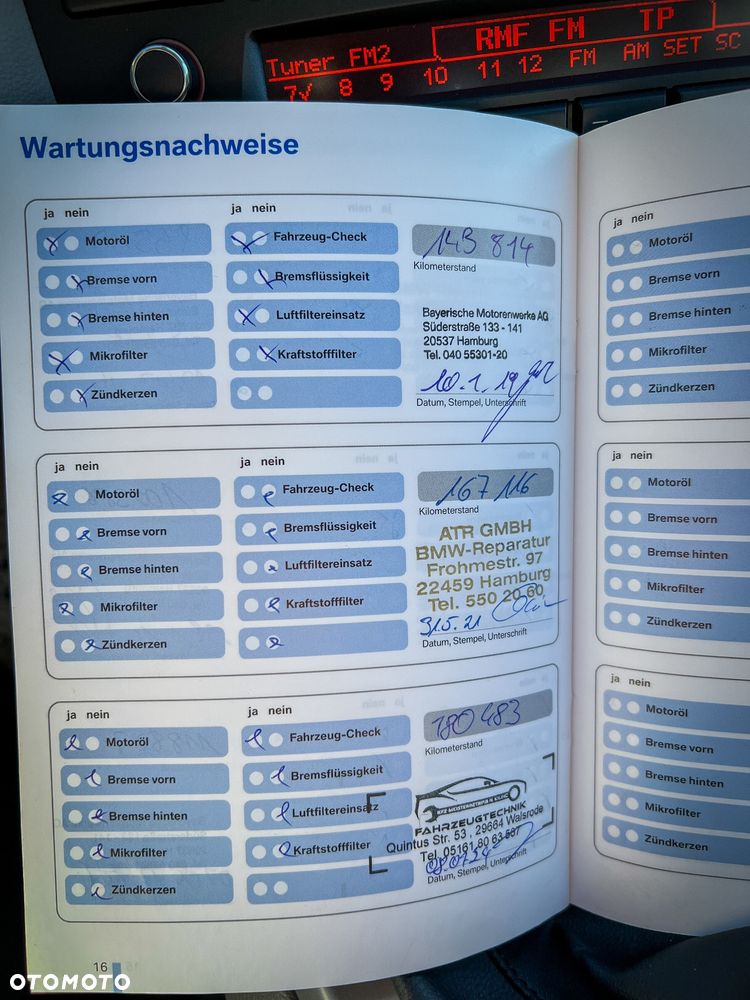 Tuner FM2 RMF FM TP
7√ 8 9 10 11 12 FM AM SET SC
Wartungsnachweise
ja nein
ja nein
Motoröl
Bremse vorn
Bremse hinten
Mikrofilter
Zündkerzen
Fahrzeug-Check
Bremsflüssigkeit
Luftfiltereinsatz
Kraftstofffilter
143 814
Kilometerstand
Bayerische Motorenwerke AG
Süderstraße 133 - 141
20537 Hamburg
Tel. 040 55301-20
10.1.19
Datum, Stempel, Unterschrift
ja nein
ja nein
Motoröl
Bremse vorn
Bremse hinten
Mikrofilter
Zündkerzen
Fahrzeug-Check
Bremsflüssigkeit
Luftfiltereinsatz
Kraftstofffilter
167 116
Kilometerstand
ATR GMBH
BMW-Reparatur
Frohmestr. 97
22459 Hamburg
Tel. 550 20 60
31.5.21
Datum, Stempel, Unterschrift
ja nein
ja nein
Motoröl
Bremse vorn
Bremse hinten
Mikrofilter
Zündkerzen
Fahrzeug-Check
Bremsflüssigkeit
Luftfiltereinsatz
Kraftstofffilter
180 483
Kilometerstand
FAHRZEUGTECHNIK
Quintus Str. 53, 29664 Walsrode
Tel. 05161 80 63 567
Datum, Stempel, Unterschrift
16
ja nein
Motoröl
Bremse vorn
Bremse hinten
Mikrofilter
Zündkerzen
ja nein
Motoröl
Bremse vorn
Bremse hinten
Mikrofilter
Zündkerzen
ja nein
Motoröl
Bremse vorn
Bremse hinten
Mikrofilter
Zündkerzen
OTOMOTO